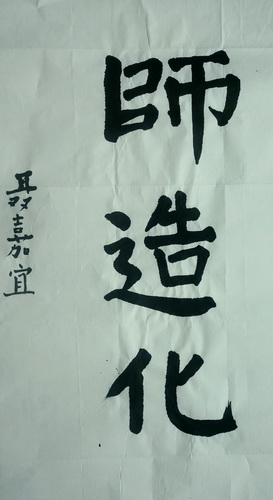 師造化
聂嘉宜